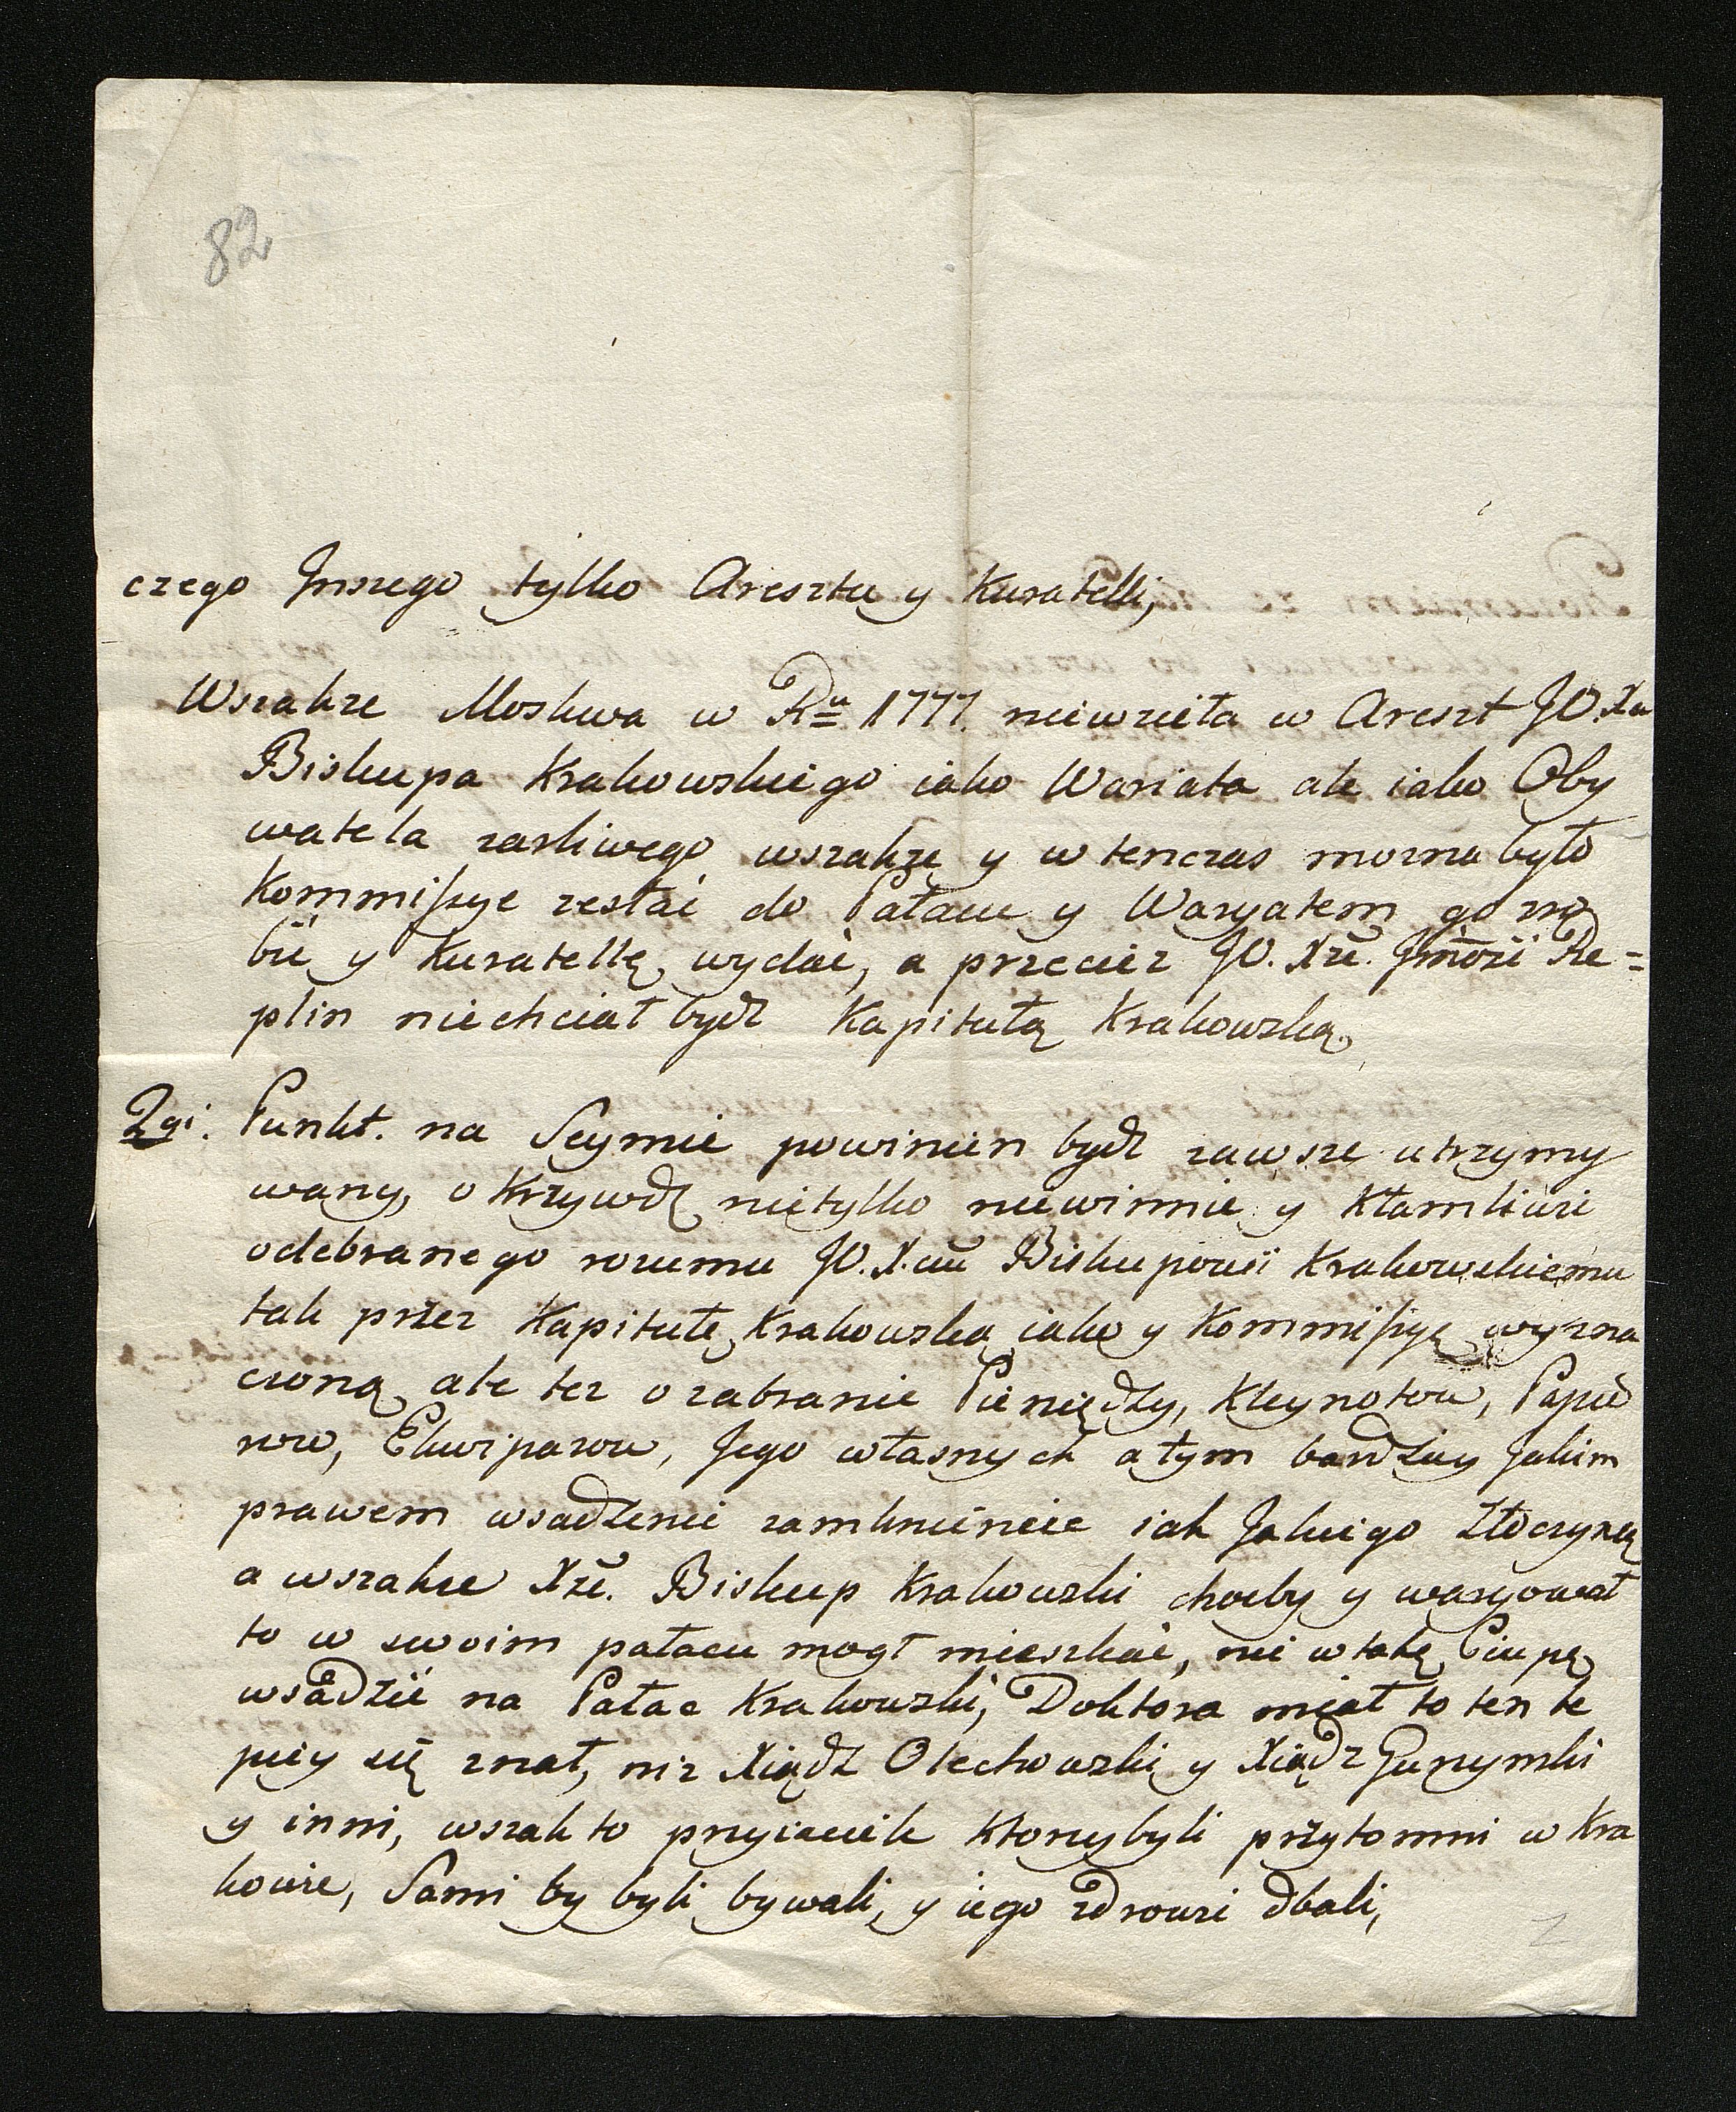 82
czego Jnszego tylko Aresztu y Kuratelli,
Wszakze Moskwa w Ru 1777. niewzieła w Areszt JO. Xa
Biskupa Krakowskiego iako Wariata ale iako Oby
watela zarliwego wszakże y w tenczas mozna było
Kommissye zesłać do Pałacu y Waryatem go zro
bić y Kuratellę wydać, a przeciez JO. Xże. Jmość Re=
plin niechciał bydź Kapitułą Krakowską,
2gi. Punkt. na Seymie powinien bydź zawsze utrzymy
wany, o Krzywdę nietylko niewinnie y Kłamliwie
odebranego rozumu JO. X.ciu Biskupowi Krakowskiemu
tak przez Kapitułę Krakowską iako y Kommissyę wyzna
czoną ale tez o zabranie Pieniędzy, Kleynotow, Papie
row, Ekwipazow, Jego własnych a tym bardziey Jakim
prawem wsadzenie zamknienie iak Jakiego złoczyńcę
a wszakze Xże. Biskup Krakowski choćby y waryował
to w swoim pałacu mogł mieszkać, nie w takę Ciupę
wsadzić na Pałac Krakowski, Doktora miał to ten le
piey się znał, niz Xiądz Olechowski y Xiądz
y inni, wszak to przyiaciele ktorzy byli przytomni w Kra
kowie, Sami by byli bywali, y iego zdrowie dbali,